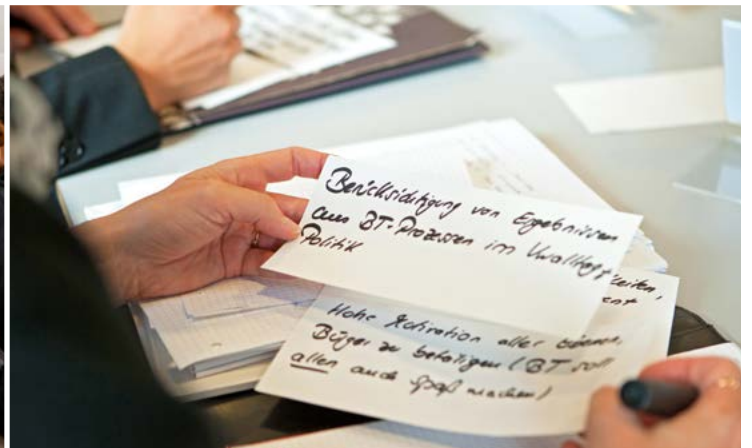 Berücksichtigung von Ergebnissen
aus BT-Prozessen im Vwalltag +
Politik
keiten,
ent
Hohe Motivation aller
Bürger zu beteiligen (BT soll
allen auch Spaß machen)